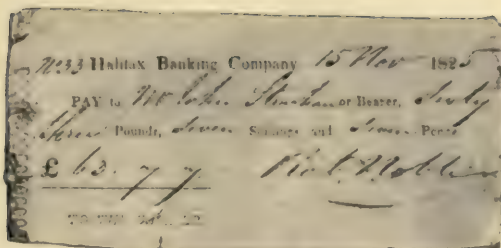 No 33 Halifax Banking Company 15 Nov 1825
PAY to Mr John Strachan or Bearer, Sixty
Three Pounds, Seven Shillings and Seven Pence
£ 63. 7 7 Robt. Noble